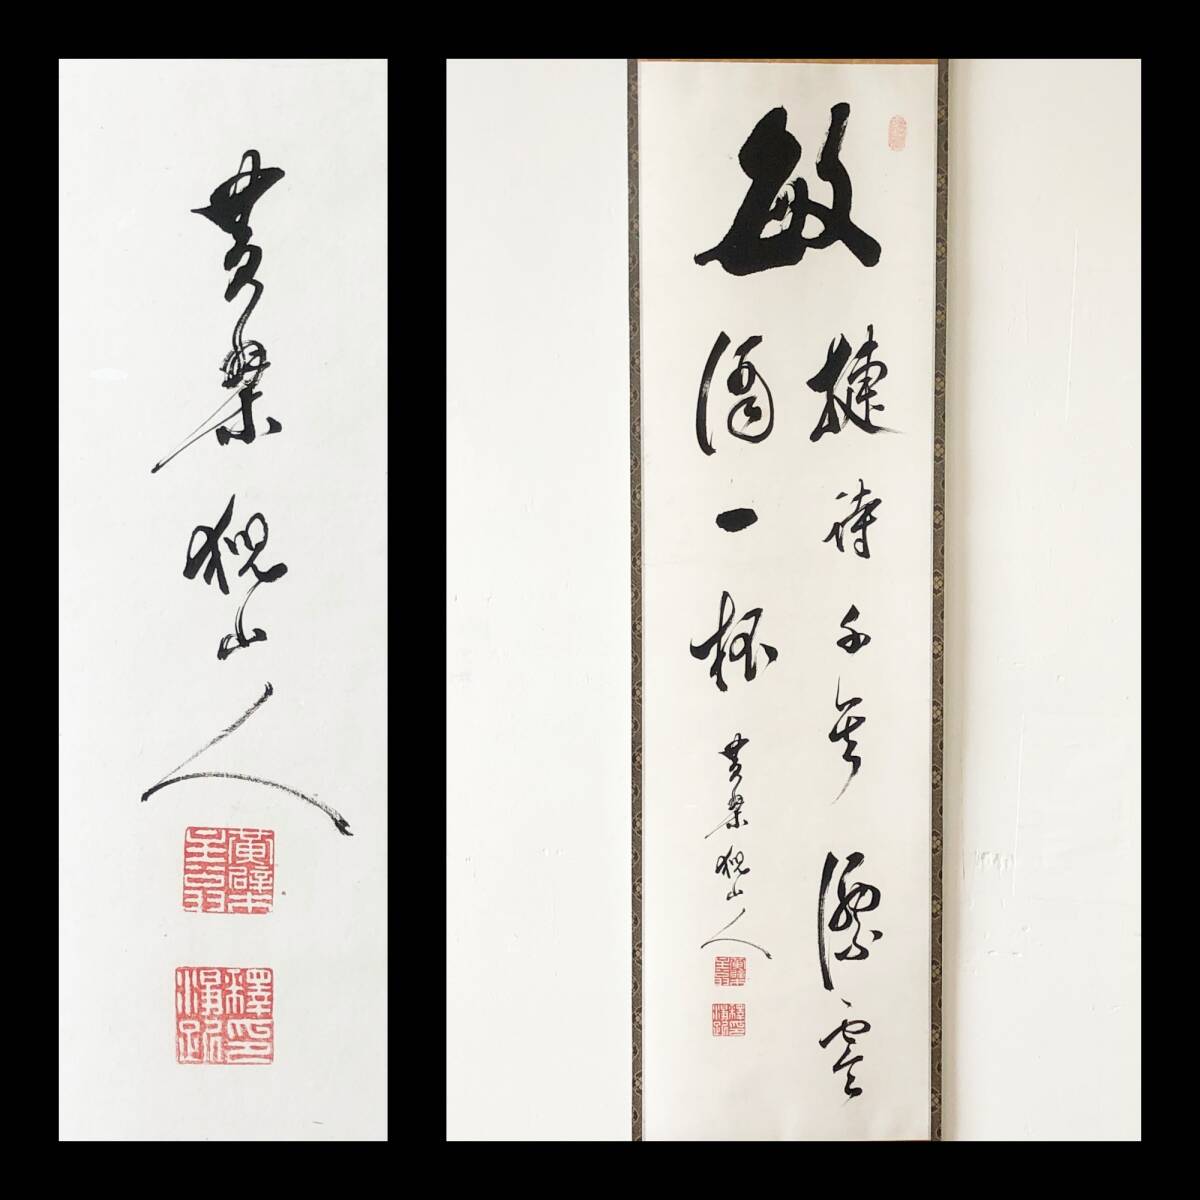 黄檗
猊山人
敏捷詩千首飄零
酒一杯
黄檗猊山人